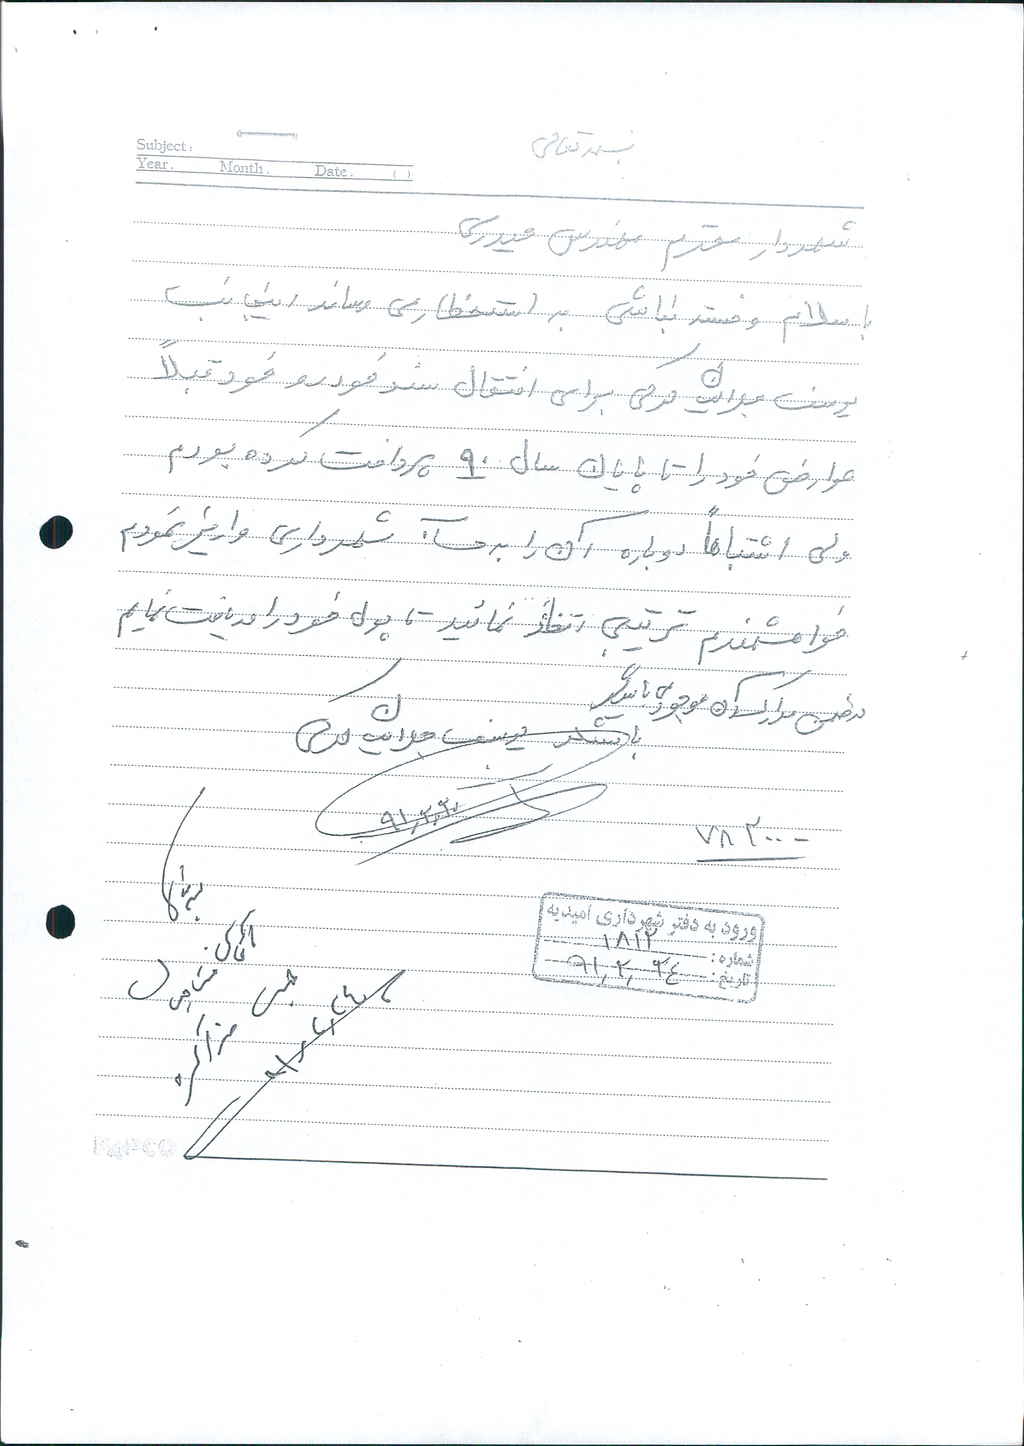 بسمه تعالی
Subject:
Year. Month. Date. ( )
شهردار محترم مهندس حیدری
با سلام و خسته نباشی به استحظار می رساند اینجانب
یوسف برای انتقال سند خودرو خود قبلاً
عوارض خود را تا پایان سال ۹۰ پرداخت کرده بودم
ولی اشتباهاً دوباره آن را به حساب شهرداری واریز نمودم
خواهشمندم ترتیبی اتخاذ نمائید تا پول خود را دریافت نمایم
در ضمن مدارک آن موجود می باشد
با تشکر یوسف
۹۱/۲/۲۰
۷۸۲۰۰۰-
ورود به دفتر شهرداری امیدیه
شماره: ۱۸۱۲
تاریخ: ۹۱/۲/۲۴
۹۱/۲/۲۴